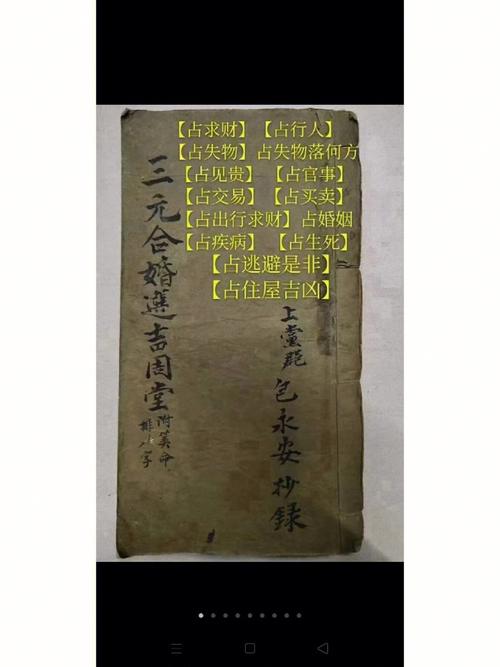 【占求财】【占行人】
【占失物】占失物落何方
【占见贵】 【占官事】
【占交易】 【占买卖】
【占出行求财】占婚姻
【占疾病】 【占生死】
【占逃避是非】
【占住屋吉凶】
三元合婚選吉周堂
附算命
排八字
上黨郡
包永安抄錄